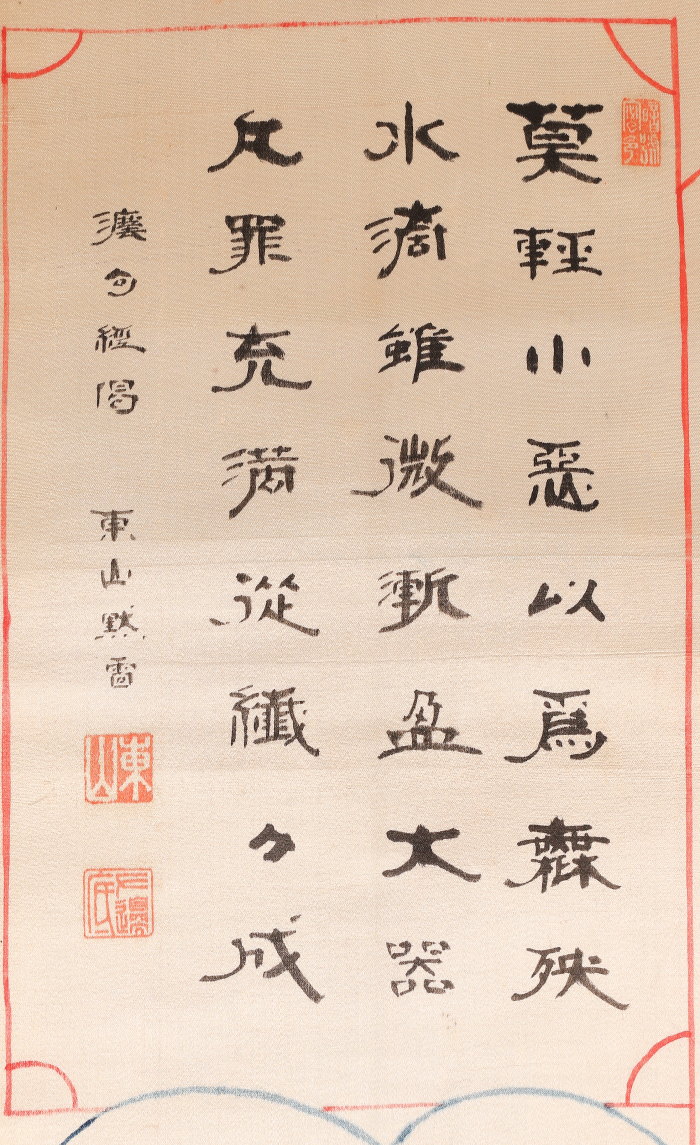 莫輕小惡以爲無殃
水滴雖微漸盈大器
凡罪充滿從纖々成
灋句經偈 東山默雷
東山